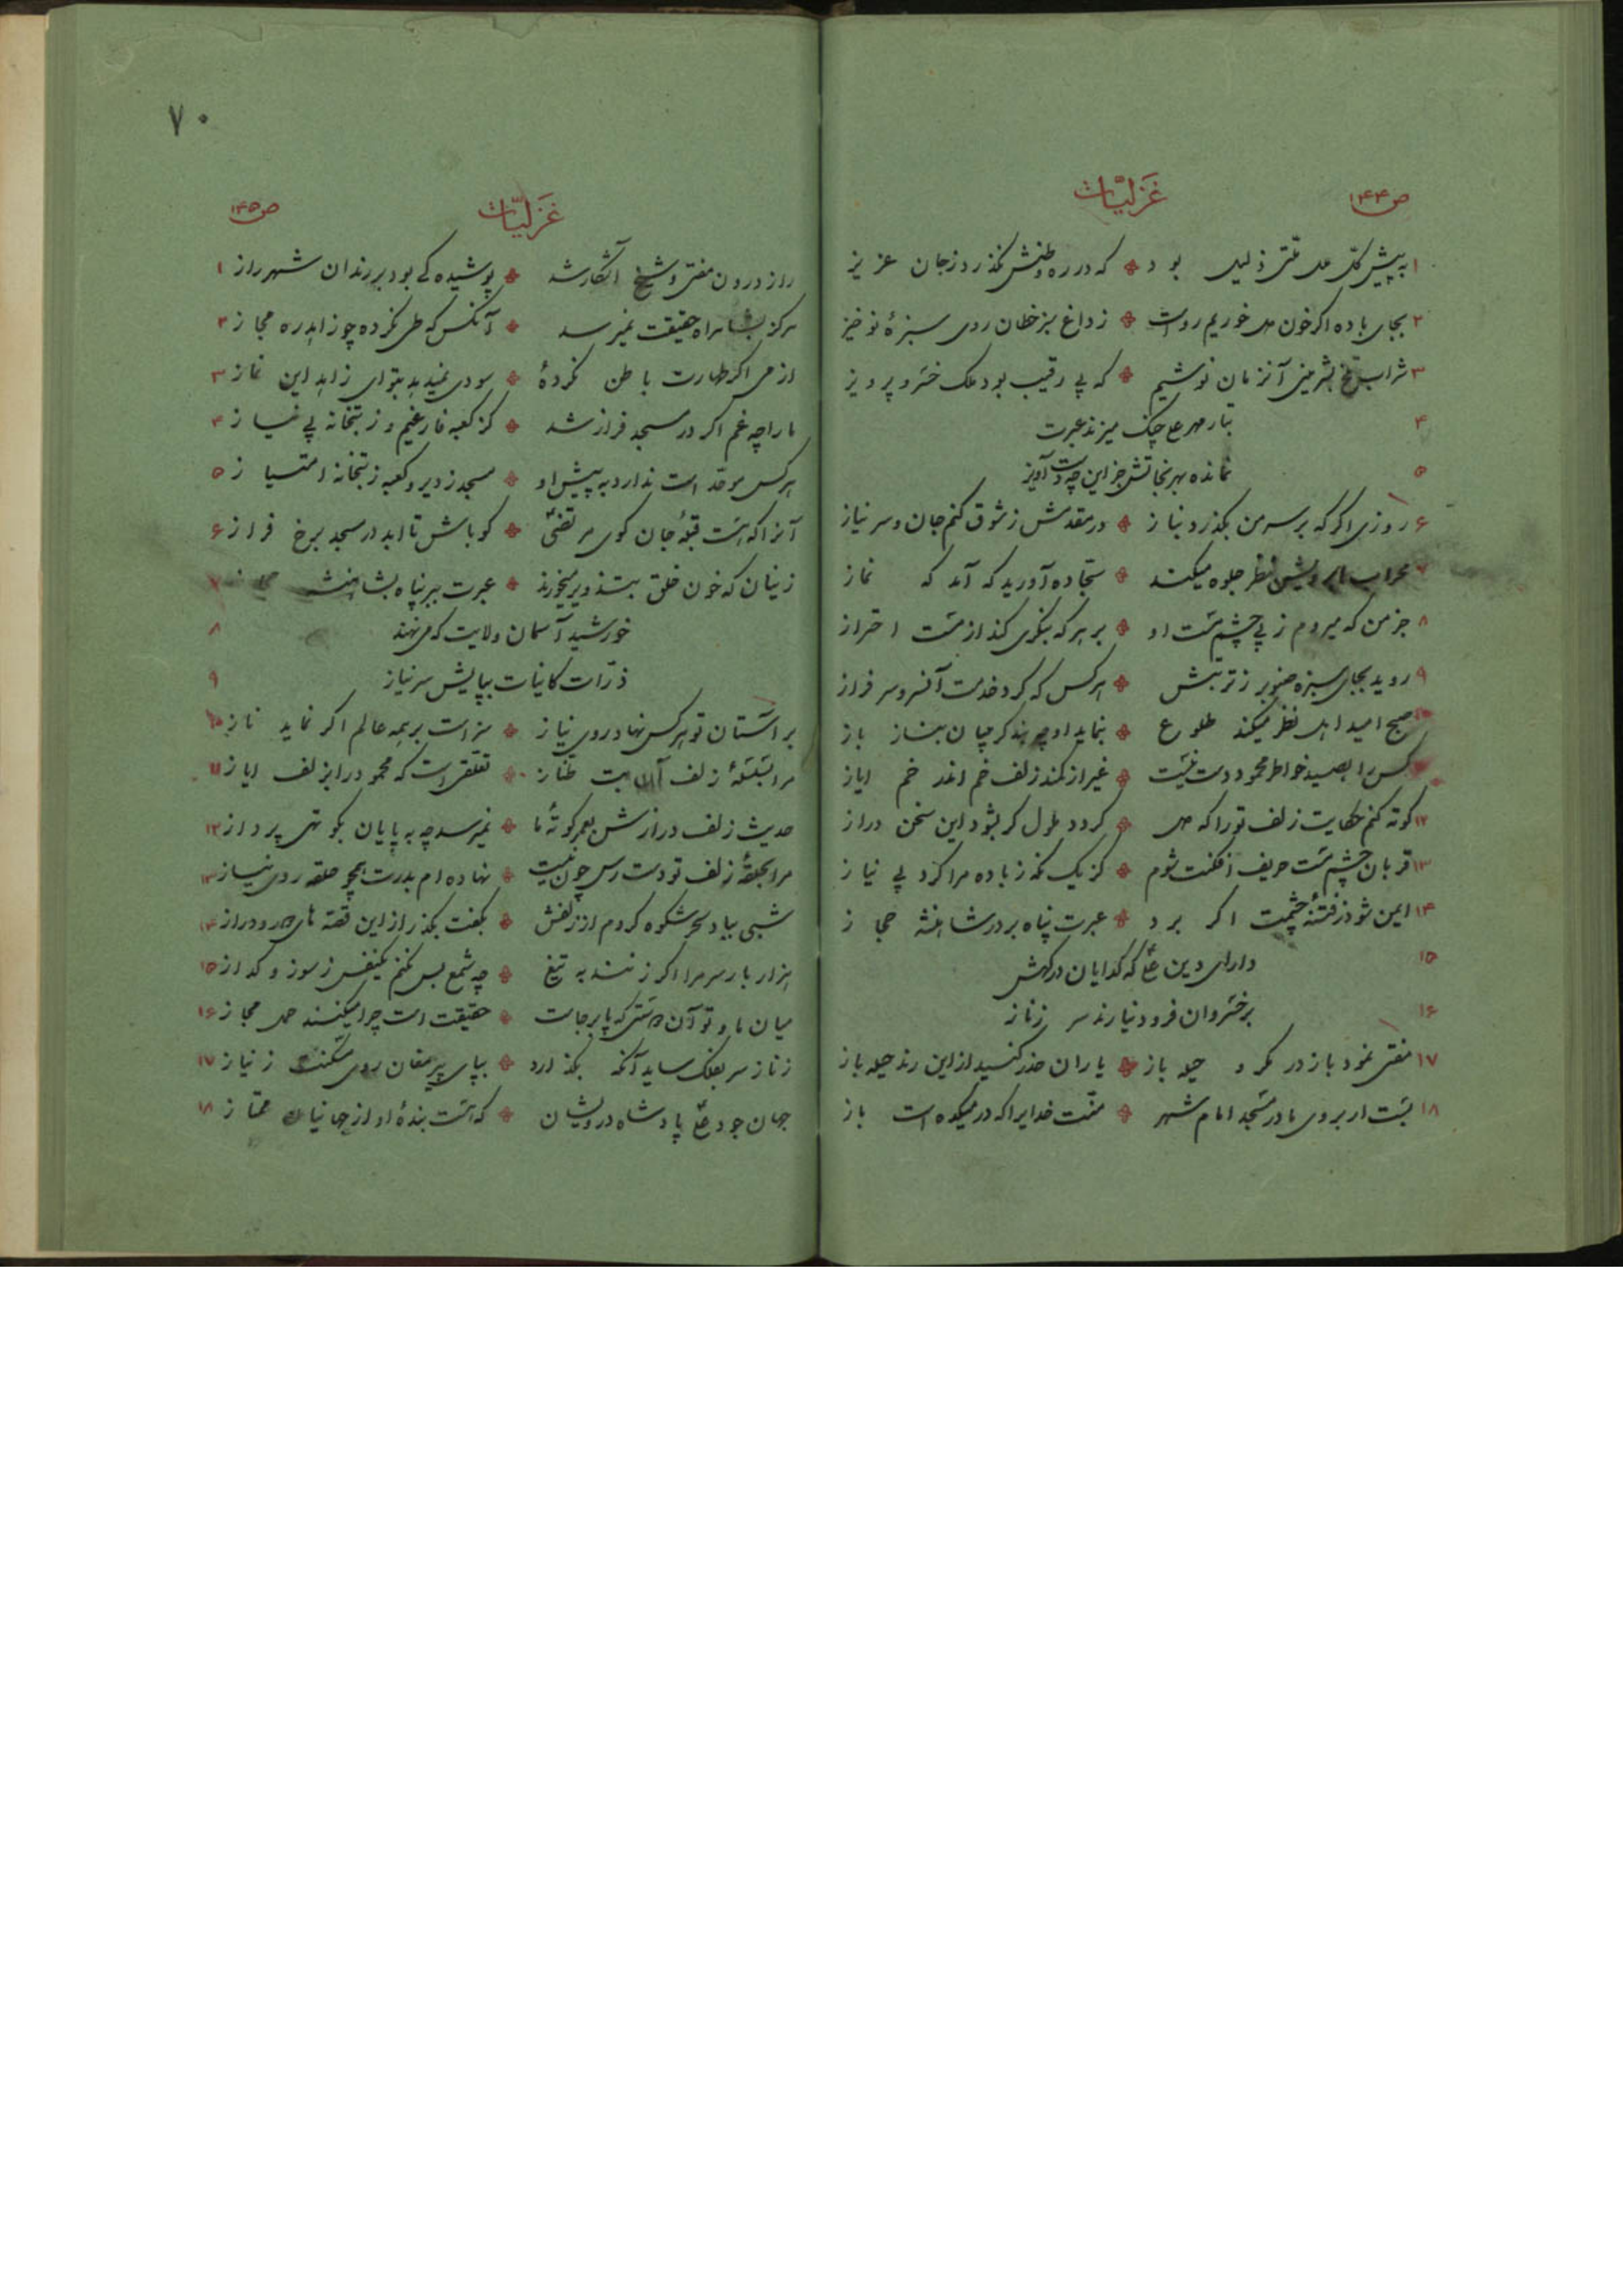 ص۱۴۴ غزلیّات
۱ به پیش کلّ ملل ملّتی ذلیل بود که در ره وطنش نگذرد ز جان عزیز
۲ بجای باده اگر خون می خوریم رواست ز داغ سبز خطان روی سبزهٔ نوخیز
۳ شراب تلخ بشیرینی آنزمان نوشیم که بی رقیب بود ملک خسرو پرویز
۴ بتار مهر علی چنگ میزند عبرت
۵ نمانده بهر نجاتش جز این چه دست آویز
۶ روزی اگر که بر سر من بگذرد بناز در مقدمش ز شوق کنم جان و سر نیاز
۷ محراب ابرویش بنظر جلوه میکند سجّاده آورید که آمد که نماز
۸ جز من که میروم ز پی چشم مست او بر هر که بنگری کند از مست احتراز
۹ روید بجای سبزه صنوبر ز تربتش هر کس که کرد خدمت آنسرو سرفراز
صبح امید اهل نظر میکند طلوع بنماید او چو بند گریبان بناز باز
کس را بصید خواطر محمود دست نیست غیر از کمند زلف خم اندر خم ایاز
۱۲ کوته کنم حکایت زلف تو را که می گردد ملول گر بشود این سخن دراز
۱۳ قربان چشم مست حریف افکنت شوم کز یک نگه ز باده مرا کرد بی نیاز
۱۴ ایمن شود ز فتنهٔ چشمت اگر برد عبرت پناه بر در شاهنشه حجاز
۱۵ دارای دین علی که گدایان درگهش
۱۶ بر خسروان فرود نیارند سر ز ناز
۱۷ مفتی نمود باز در مکر و حیله باز یاران حذر کنید از این رند حیله باز
۱۸ بست ار بروی ما در مسجد امام شهر منّت خدایرا که در میکده است باز
۷۰
غزلیّات ص۱۴۵
راز درون مفتی و شیخ آشکار شد پوشیده کی بود بر رندان شهر راز ۱
هرگز بشاهراه حقیقت نمیرسد آنکس که طی نکرده چو زاهد ره مجاز ۲
از می اگر طهارت باطن نکردهٔ سودی نمیدهد بتو ای زاهد این نماز ۳
ما را چه غم اگر در مسجد فراز شد کز کعبه فارغیم و ز بتخانه بی نیاز ۴
هر کس موحّد است ندارد به پیش او مسجد ز دیر و کعبه ز بتخانه امتیاز ۵
آنرا که هست قبلهٔ جان کوی مرتضی گو باش تا ابد در مسجد برخ فراز ۶
زینان که خون خلق بتزویر میخورند عبرت ببر پناه بشاهنشه حجاز ۷
خورشید آسمان ولایت که می نهند ۸
ذرّات کائنات بپایش سر نیاز ۹
بر آستان تو هر کس نهاد روی نیاز سزاست بر همه عالم اگر نماید ناز ۱۰
مرا بسَبسلهٔ زلف آن بت طنّاز تعلّقی است که محمود را بزلف ایاز ۱۱
حدیث زلف درازش بعمر کوتهٔ ما نمیرسد چه به پایان بگو تهی پرداز ۱۲
مرا بحلقهٔ زلف تو دست رس چون نیست نهاده ام بدرت همچو حلقه روی نیاز ۱۳
شبی بباد سحر شکوه کردم از زلفش بگفت بگذر از این قصّه های دور و دراز ۱۴
هزار بار سر مرا اگر زنند به تیغ چه شمع بس نکنم یکنفس ز سوز و گداز ۱۵
میان ما و تو آن دوستی که پا بر جاست حقیقت است چرا میکنند حمل مجاز ۱۶
ز ناز سر بفلک ساید آنکه بگذارد بپای پیر مغان روی مسکنت ز نیاز ۱۷
جهان جود علی پادشاه درویشان که هست بندهٔ او از جهانیان ممتاز ۱۸